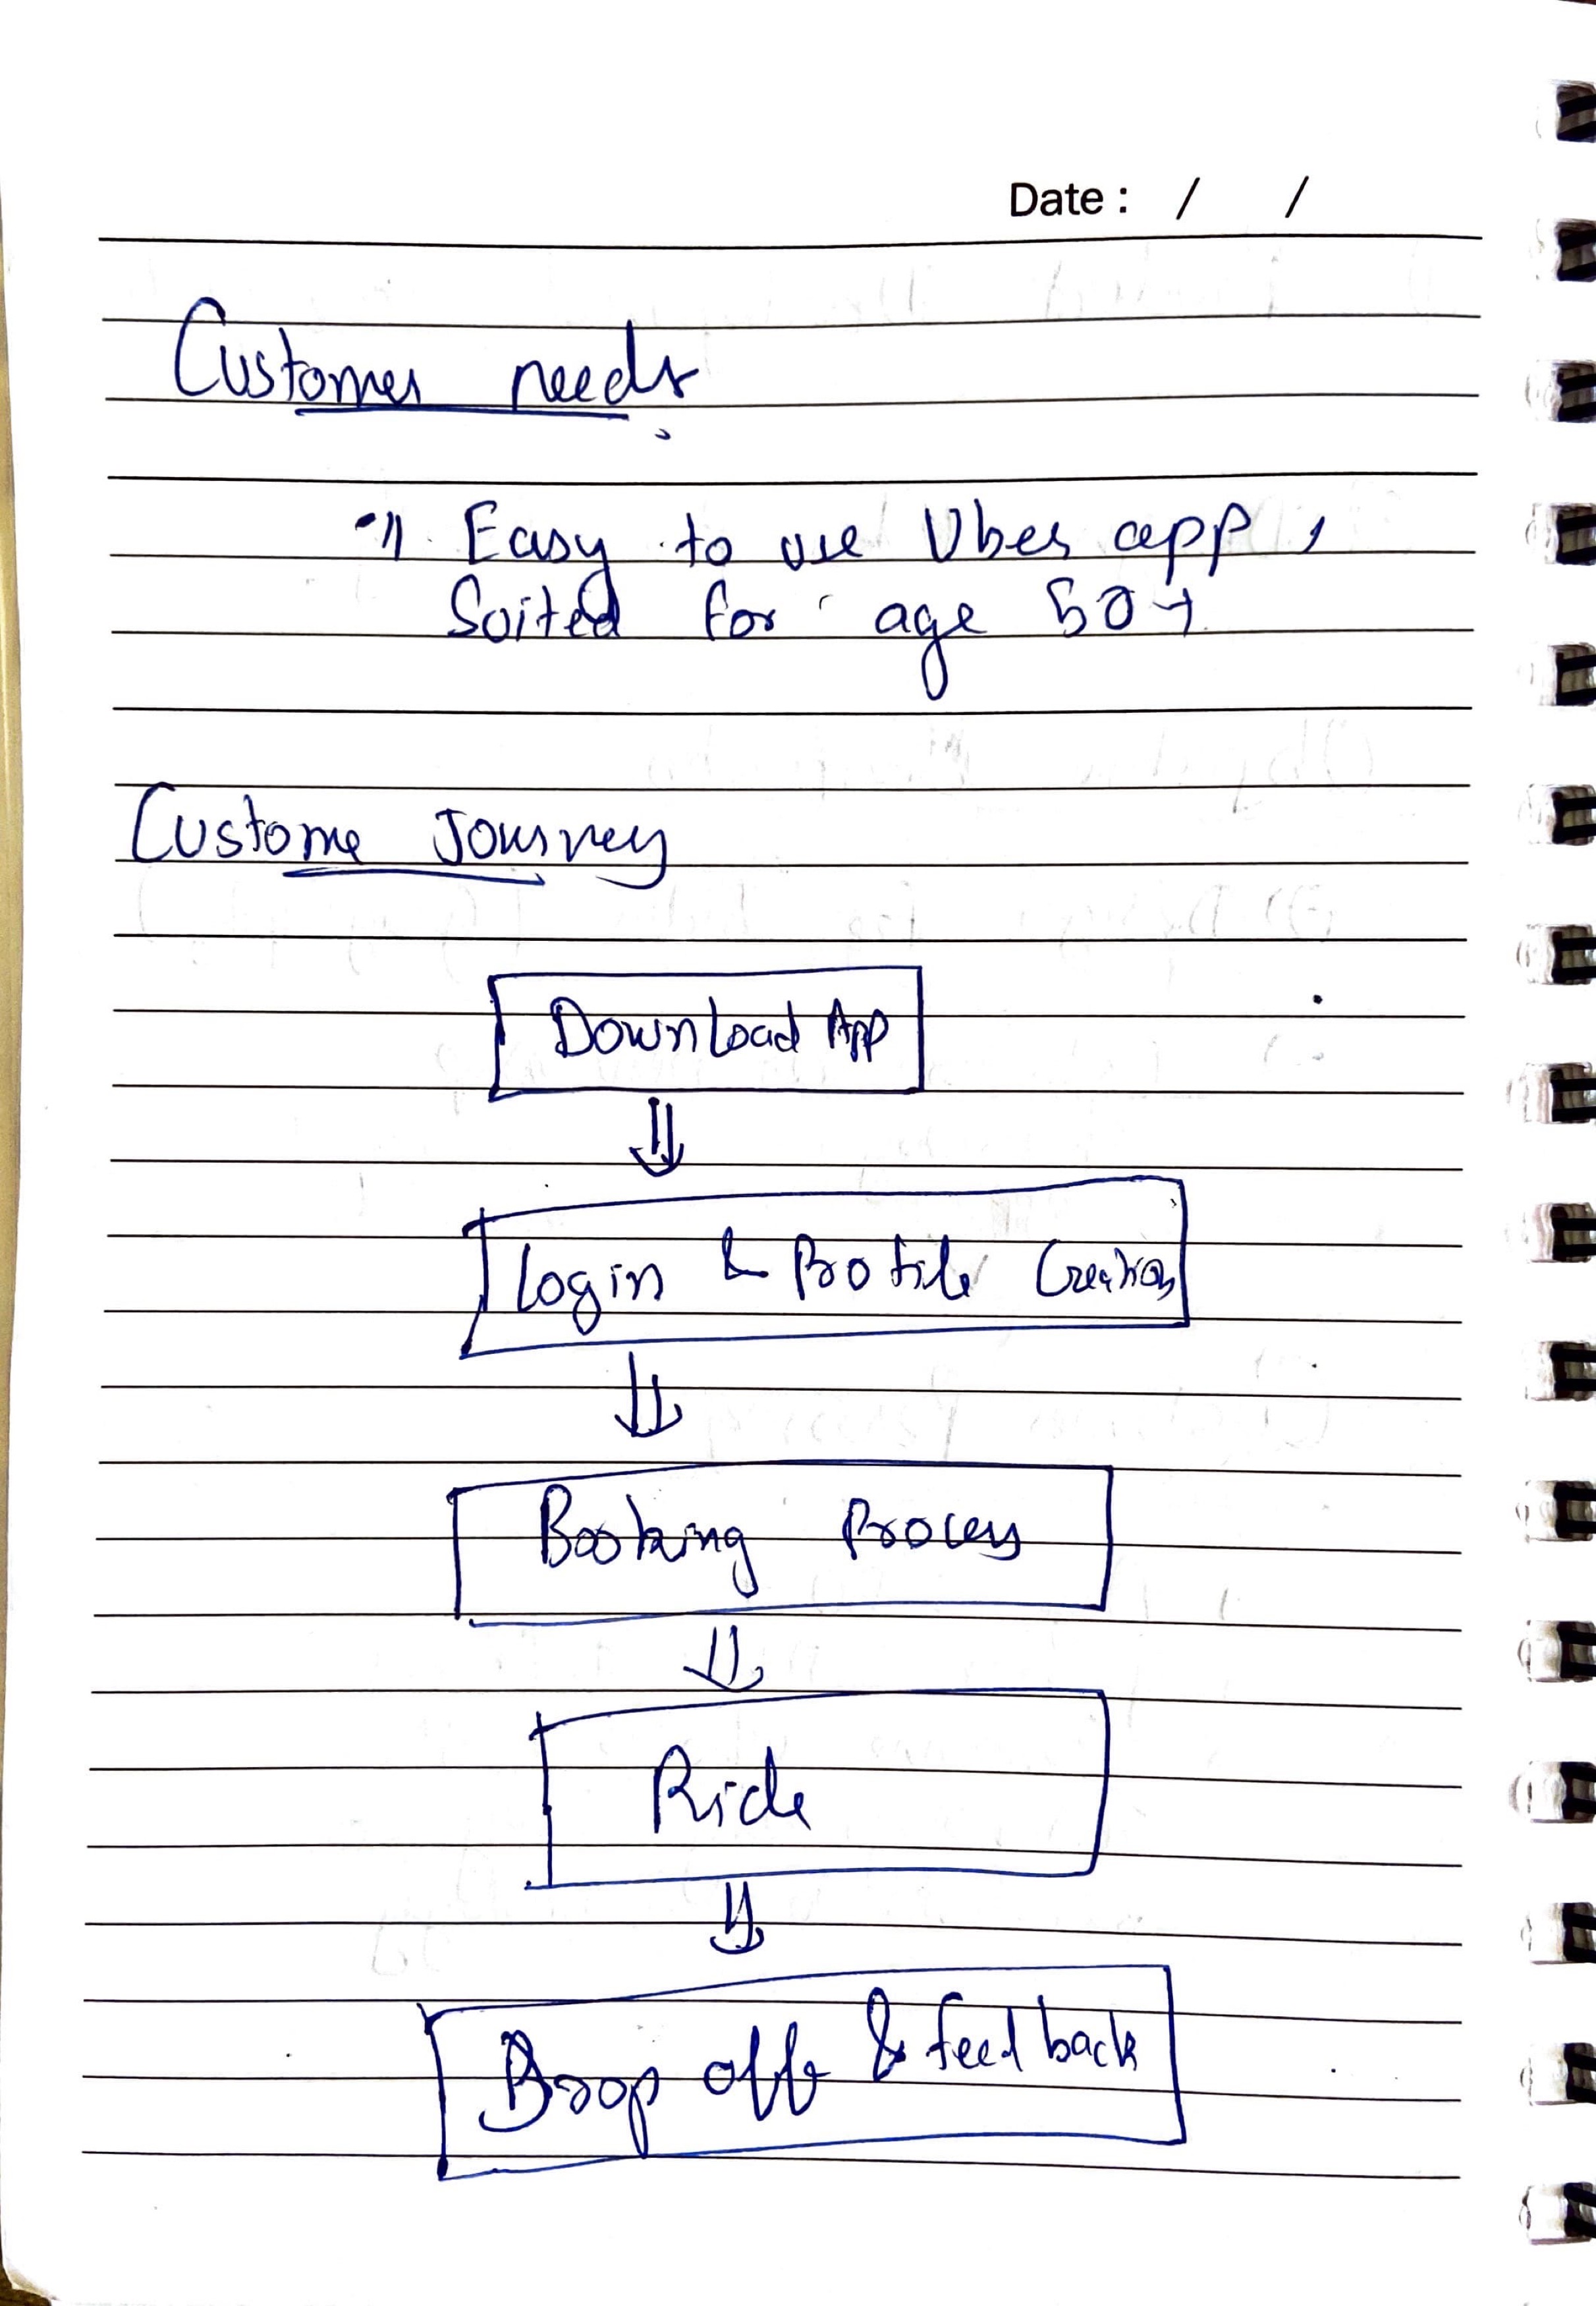 Date : / /
Customer needs
Easy to use Uber app,
Suited for age 50+
Custome Journey
Download App
Login & Profile Creation
Booking Process
Ride
Drop off & feed back